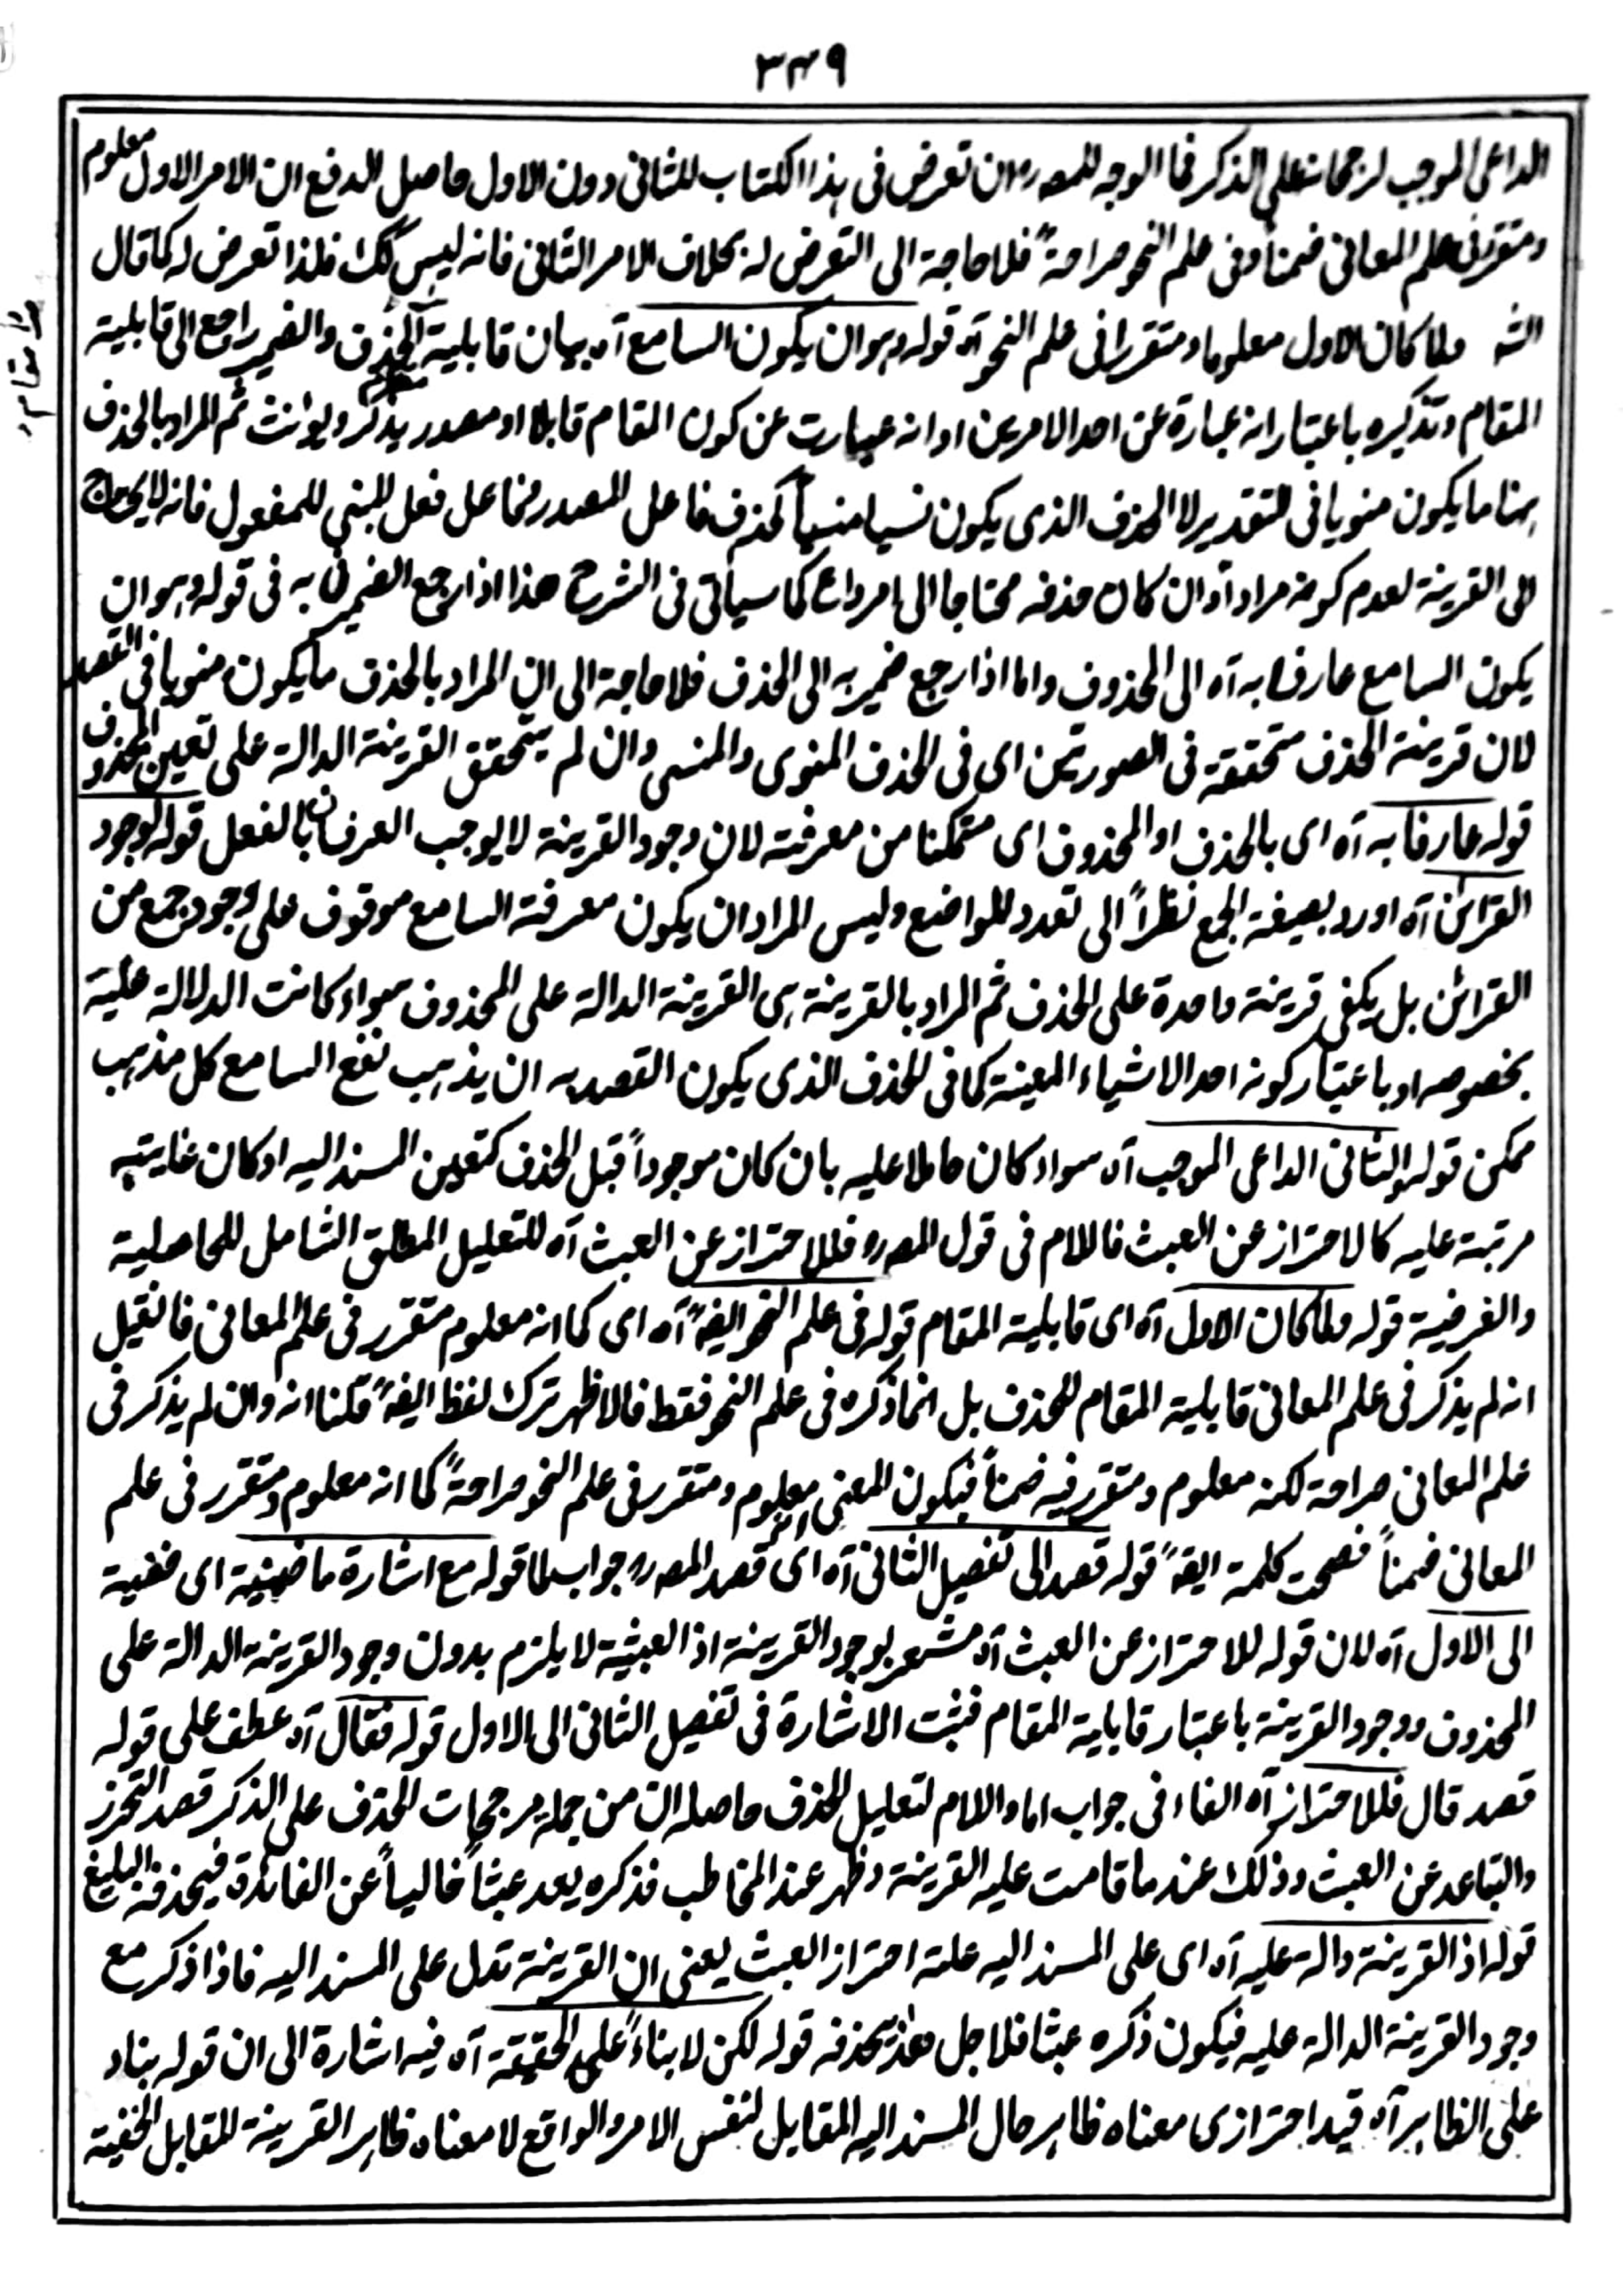 ٣٤٩
الداعی الموجب لرجحانہ علی الذکر فما الوجہ للمصؒ ان تعرض فی ہذا الکتاب للثانی دون الاول حاصل الدفع ان الامر الاول معلوم
ومتقرر فی علم المعانی ضمناً وفی علم النحو صراحۃً فلا حاجۃ الی التعرض لہ بخلاف الامر الثانی فانہ لیس کک فلذا تعرض لہ کما قال
الشہ ولما کان الاول معلوما ومتقررا فی علم النحو آہ قولہ وہو ان یکون السامع آہ بیان قابلیۃ الحذف والضمیر راجع الی قابلیۃ
المقام وتذکیرہ باعتبار انہ عبارۃ عن احد الامرین او انہ عبارت عن کون المقام قابلا او مصدر یذکر ویونث ثم المراد بالحذف
ہہنا ما یکون منویا فی التقدیر لا الحذف الذی یکون نسیا منسیاً کحذف فاعل المصدر وفاعل فعل المبنی للمفعول فانہ لا یحتاج
الی القرینۃ لعدم کونہ مرادا وان کان حذفہ محتاجا الی امر داع کما سیاتی فی الشرح ھذا اذا رجع الضمیر فی بہ فی قولہ وہو ان
یکون السامع عارفا بہ آہ الی المحذوف واما اذا رجع ضمیر بہ الی الحذف فلا حاجۃ الی ان المراد بالحذف ما یکون منویا فی القصد
لان قرینۃ الحذف متحققۃ فی الصورتین ای فی الحذف المنوی والمنسی وان لم یتحقق القرینۃ الدالۃ علی تعیین المحذوف
قولہ عارفا بہ آہ ای بالحذف او المحذوف ای متمکنا من معرفتہ لان وجود القرینۃ لا یوجب العرفان بالفعل قولہ لوجود
القرائن آہ اورد بصیغۃ الجمع نظراً الی تعدد المواضع ولیس المراد ان یکون معرفۃ السامع موقوف علی وجود جمع من
القرائن بل یکفی قرینۃ واحدۃ علی الحذف ثم المراد بالقرینۃ ہی القرینۃ الدالۃ علی المحذوف سواء کانت الدلالۃ علیہ
بخصوصہ او باعتبار کونہ احد الاشیاء المعینۃ کما فی الحذف الذی یکون القصد بہ ان یذہب نفع السامع کل مذہب
ممکن قولہ والثانی الداعی الموجب آہ سواء کان حاملا علیہ بان کان موجوداً قبل الحذف کتعین المسند الیہ او کان غایتہ
مرتبۃ علیہ کالاحتراز عن العبث فاللام فی قول المصؒ فللاحتراز عن العبث آہ للتعلیل المطلق الشامل للحاصلیۃ
والغرضیۃ قولہ ولما کان الاول آہ ای قابلیۃ المقام قولہ فی علم النحو ایضہً آہ ای کما انہ معلوم متقرر فی علم المعانی فان قیل
انہ لم یذکر فی علم المعانی قابلیۃ المقام للحذف بل انما ذکرہ فی علم النحو فقط فالاظہر ترک لفظ ایضہً قلنا انہ وان لم یذکر فی
علم المعانی صراحۃ لکنہ معلوم ومتقرر فیہ ضمناً فیکون المعنی معلوم ومتقرر فی علم النحو صراحۃً کما انہ معلوم ومتقرر فی علم
المعانی ضمناً فصحت کلمۃ ایضہً قولہ قصد الی تفصیل الثانی آہ ای قصد المصؒ جواب لما قولہ مع اشارۃ ما ضمنیۃ ای خفیۃ
الی الاول آہ لان قولہ للاحتراز عن العبث آہ مشعر بوجود القرینۃ اذ العبثیۃ لا یلزم بدون وجود القرینۃ الدالۃ علی
المحذوف ووجود القرینۃ باعتبار قابلیۃ المقام فثبت الاشارۃ فی تفصیل الثانی الی الاول قولہ فقال آہ عطف علی قولہ
قصد قال فللاحتراز آہ الفاء فی جواب اما واللام لتعلیل الحذف حاصلہ ان من جملہ مرجحات الحذف علی الذکر قصد التحرز
والتباعد عن العبث وذلک عند ما قامت علیہ القرینۃ وظہر عند المخاطب فذکرہ یعد عبثاً خالیاً عن الفائدۃ فیحذفہ البلیغ
قولہ اذ القرینۃ دالۃ علیہ آہ ای علی المسند الیہ علۃ احتراز العبث یعنی ان القرینۃ تدل علی المسند الیہ فاذا ذکر مع
وجود القرینۃ الدالۃ علیہ فیکون ذکرہ عبثا فلاجل ھذا یحذفہ قولہ لکن لا بناءً علی الحقیقۃ آہ فیہ اشارۃ الی ان قولہ بناء
علی الظاہر آہ قید احترازی معناہ ظاہر حال المسند الیہ المقابل لنفس الامر والواقع لا معناہ ظاہر القرینۃ المقابل الخفیۃ